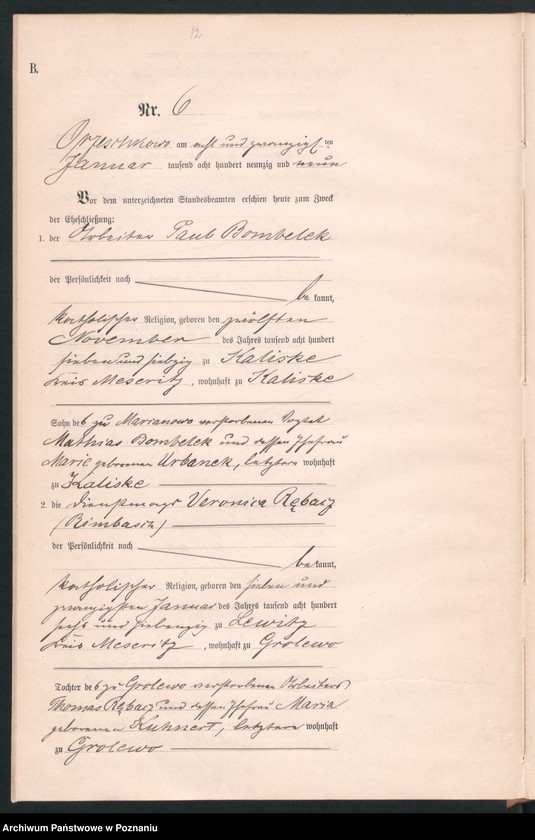 12
B.
Nr. 6
Orzeschkowo am acht und zwanzigsten
Januar tausend acht hundert neunzig und neun
Vor dem unterzeichneten Standesbeamten erschien heute zum Zweck
der Eheschließung:
1. der Arbeiter Paul Bombelek
der Persönlichkeit nach
be kannt,
katholischer Religion, geboren den zwölften
November des Jahres tausend acht hundert
sieben und siebzig zu Kaliske
Kreis Meseritz, wohnhaft zu Kaliske
Sohn des zu Marianowo verstorbenen Vogtes
Mathias Bombelek und dessen Ehefrau
Marie geborenen Urbanek, letztere wohnhaft
zu Kaliske
2. die Dienstmagd Veronica Rębasz
(Rimbasch)
der Persönlichkeit nach
be kannt,
katholischer Religion, geboren den sieben und
zwanzigsten Januar des Jahres tausend acht hundert
sechs und siebenzig zu Lewitz
Kreis Meseritz, wohnhaft zu Grolewo
Tochter des zu Grolewo verstorbenen Arbeiters
Thomas Rębasz und dessen Ehefrau Maria
geborenen Kuhnert, letztere wohnhaft
zu Grolewo
Archiwum Państwowe w Poznaniu